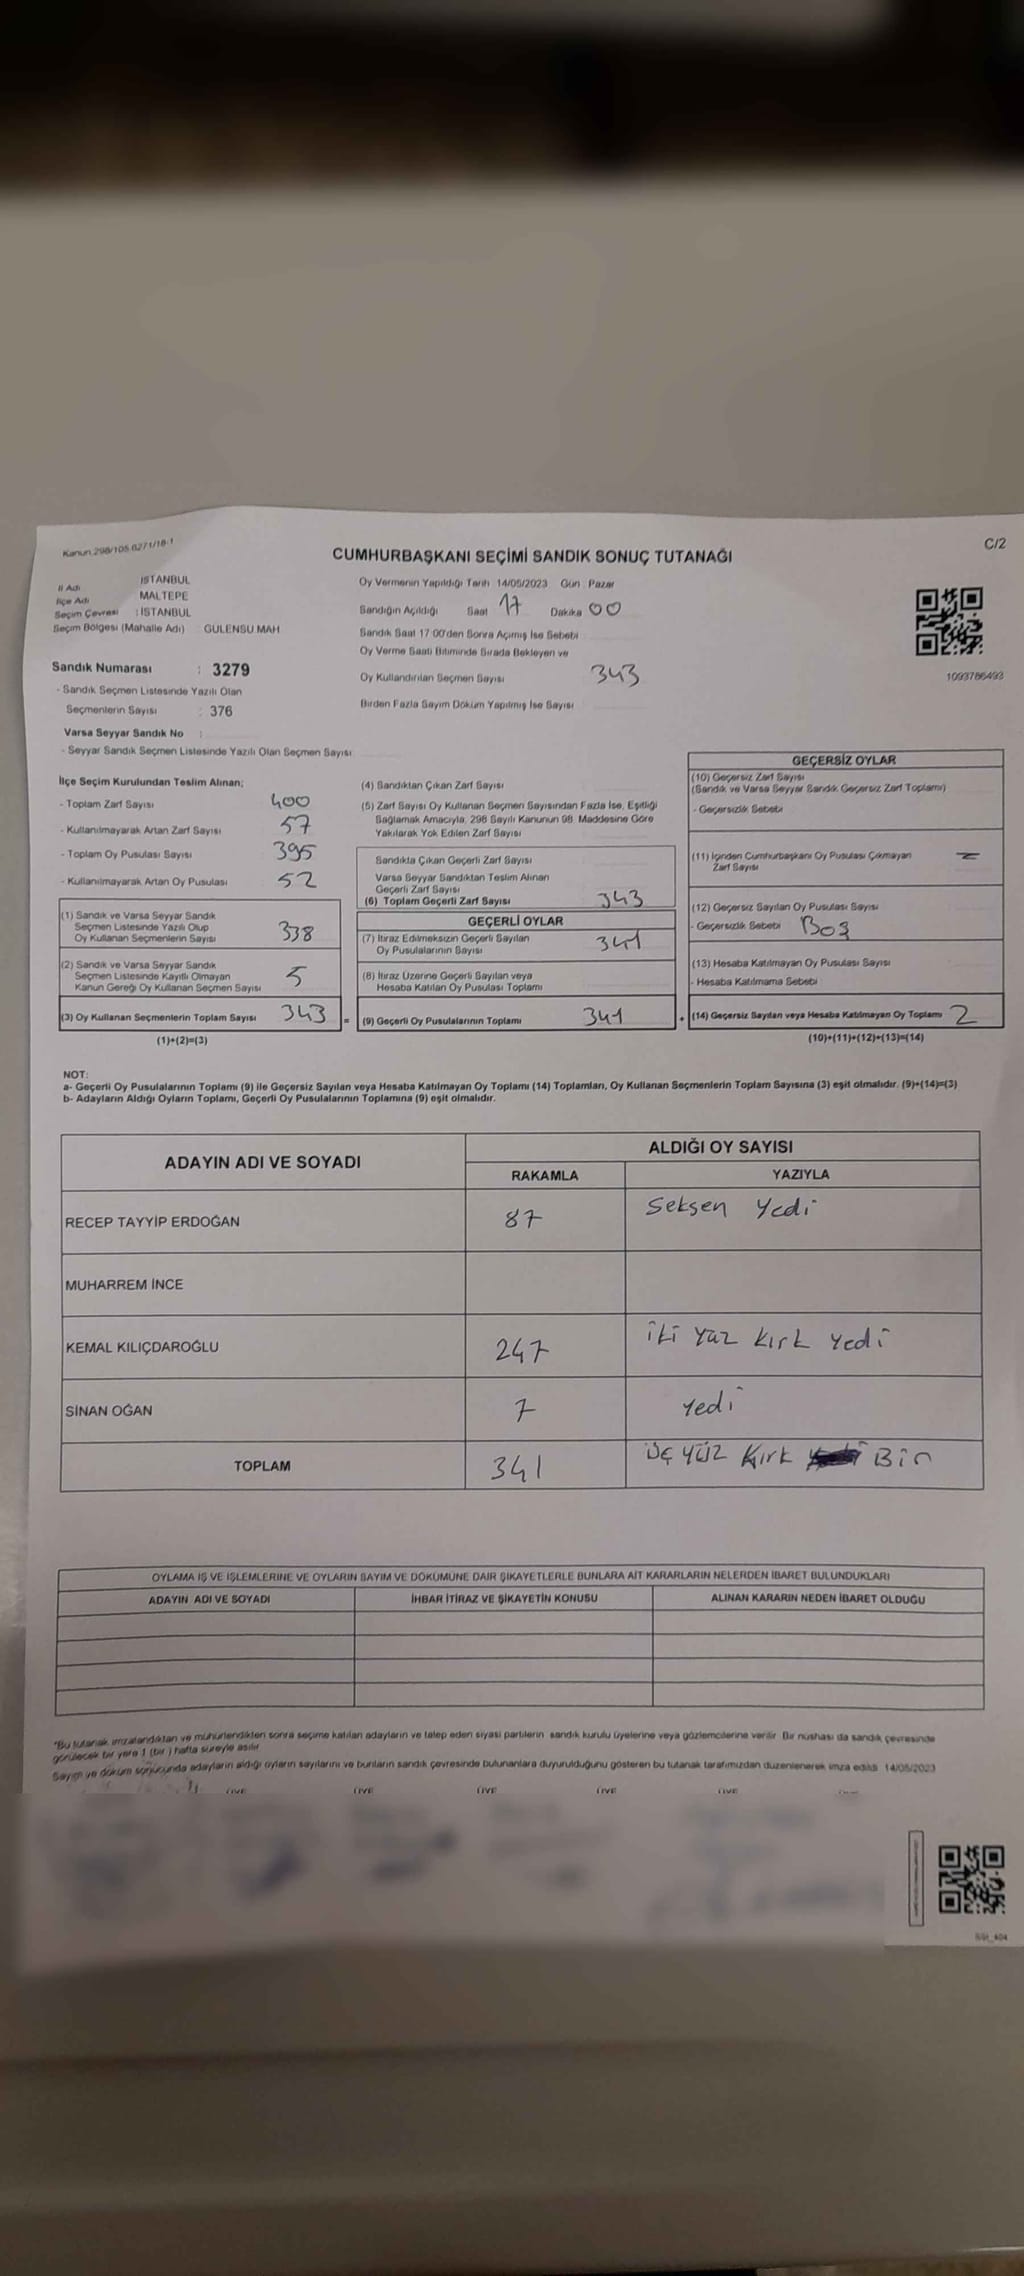 Kanun:298/105.6271/18-1
C/2
CUMHURBAŞKANI SEÇİMİ SANDIK SONUÇ TUTANAĞI
İl Adı İSTANBUL
İlçe Adı MALTEPE
Seçim Çevresi : İSTANBUL
Seçim Bölgesi (Mahalle Adı) GÜLENSU MAH
Sandık Numarası : 3279
- Sandık Seçmen Listesinde Yazılı Olan
Seçmenlerin Sayısı : 376
Varsa Seyyar Sandık No :
- Seyyar Sandık Seçmen Listesinde Yazılı Olan Seçmen Sayısı
Oy Vermenin Yapıldığı Tarih 14/05/2023 Gün : Pazar
Sandığın Açıldığı Saat 17 Dakika 00
Sandık Saat 17:00'den Sonra Açılmış İse Sebebi
Oy Verme Saati Bitiminde Sırada Bekleyen ve
Oy Kullandırılan Seçmen Sayısı 343
Birden Fazla Sayım Döküm Yapılmış İse Sayısı
1093786493
İlçe Seçim Kurulundan Teslim Alınan;
- Toplam Zarf Sayısı 400
- Kullanılmayarak Artan Zarf Sayısı 57
- Toplam Oy Pusulası Sayısı 395
- Kullanılmayarak Artan Oy Pusulası 52
(1) Sandık ve Varsa Seyyar Sandık
Seçmen Listesinde Yazılı Olup
Oy Kullanan Seçmenlerin Sayısı 338
(2) Sandık ve Varsa Seyyar Sandık
Seçmen Listesinde Kayıtlı Olmayan
Kanun Gereği Oy Kullanan Seçmen Sayısı 5
(3) Oy Kullanan Seçmenlerin Toplam Sayısı 343 =
(1)+(2)=(3)
(4) Sandıktan Çıkan Zarf Sayısı
(5) Zarf Sayısı Oy Kullanan Seçmen Sayısından Fazla İse, Eşitliği
Sağlamak Amacıyla, 298 Sayılı Kanunun 98. Maddesine Göre
Yakılarak Yok Edilen Zarf Sayısı
Sandıkta Çıkan Geçerli Zarf Sayısı
Varsa Seyyar Sandıktan Teslim Alınan
Geçerli Zarf Sayısı
(6) Toplam Geçerli Zarf Sayısı 343
GEÇERLİ OYLAR
(7) İtiraz Edilmeksizin Geçerli Sayılan
Oy Pusulalarının Sayısı 341
(8) İtiraz Üzerine Geçerli Sayılan veya
Hesaba Katılan Oy Pusulası Toplamı
(9) Geçerli Oy Pusulalarının Toplamı 341 +
GEÇERSİZ OYLAR
(10) Geçersiz Zarf Sayısı
(Sandık ve Varsa Seyyar Sandık Geçersiz Zarf Toplamı)
- Geçersizlik Sebebi
(11) İçinden Cumhurbaşkanı Oy Pusulası Çıkmayan
Zarf Sayısı
(12) Geçersiz Sayılan Oy Pusulası Sayısı
- Geçersizlik Sebebi Boş
(13) Hesaba Katılmayan Oy Pusulası Sayısı
- Hesaba Katılmama Sebebi
(14) Geçersiz Sayılan veya Hesaba Katılmayan Oy Toplamı 2
(10)+(11)+(12)+(13)=(14)
NOT:
a- Geçerli Oy Pusulalarının Toplamı (9) ile Geçersiz Sayılan veya Hesaba Katılmayan Oy Toplamı (14) Toplamları, Oy Kullanan Seçmenlerin Toplam Sayısına (3) eşit olmalıdır. (9)+(14)=(3)
b- Adayların Aldığı Oyların Toplamı, Geçerli Oy Pusulalarının Toplamına (9) eşit olmalıdır.
ADAYIN ADI VE SOYADI
ALDIĞI OY SAYISI
RAKAMLA YAZIYLA
RECEP TAYYİP ERDOĞAN 87 Seksen Yedi
MUHARREM İNCE
KEMAL KILIÇDAROĞLU 247 iki yüz kırk yedi
SİNAN OĞAN 7 yedi
TOPLAM 341 üç yüz Kırk Bir
OYLAMA İŞ VE İŞLEMLERİNE VE OYLARIN SAYIM VE DÖKÜMÜNE DAİR ŞİKAYETLERLE BUNLARA AİT KARARLARIN NELERDEN İBARET BULUNDUKLARI
ADAYIN ADI VE SOYADI İHBAR İTİRAZ VE ŞİKAYETİN KONUSU ALINAN KARARIN NEDEN İBARET OLDUĞU
*Bu tutanak imzalandıktan ve mühürlendikten sonra seçime katılan adayların ve talep eden siyasi partilerin sandık kurulu üyelerine veya gözlemcilerine verilir. Bir nüshası da sandık çevresinde
görülecek bir yere 1 (bir) hafta süreyle asılır.
Sayım ve döküm sonucunda adayların aldığı oyların sayılarını ve bunların sandık çevresinde bulunanlara duyurulduğunu gösteren bu tutanak tarafımızdan düzenlenerek imza edildi. 14/05/2023
ÜYE ÜYE ÜYE ÜYE ÜYE